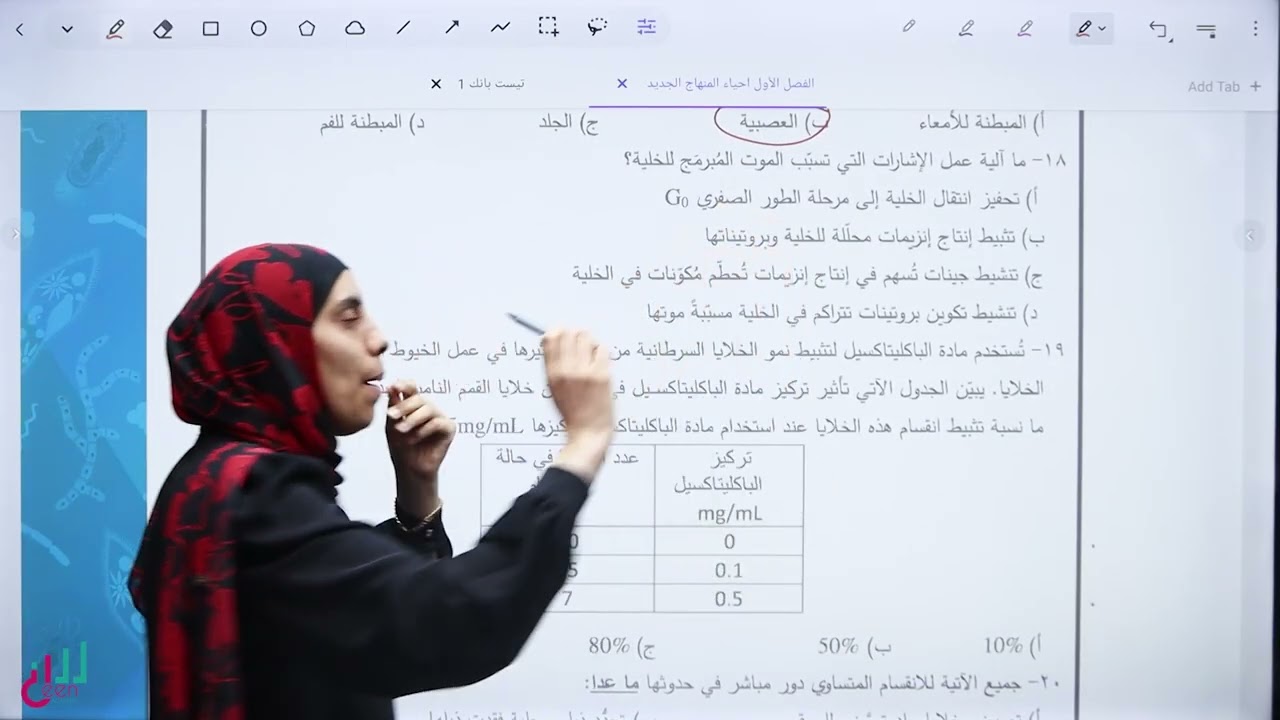 تيست بانك 1
الفصل الأول احياء المنهاج الجديد
Add Tab
أ) المبطنة للأمعاء ب) العصبية ج) الجلد د) المبطنة للفم
١٨- ما آلية عمل الإشارات التي تسبّب الموت المُبرمَج للخلية؟
أ) تحفيز انتقال الخلية إلى مرحلة الطور الصفري G₀
ب) تثبيط إنتاج إنزيمات محلّلة للخلية وبروتيناتها
ج) تنشيط جينات تُسهم في إنتاج إنزيمات تُحطّم مُكوّنات في الخلية
د) تنشيط تكوين بروتينات تتراكم في الخلية مسبّبةً موتها
١٩- تُستخدم مادة الباكليتاكسيل لتثبيط نمو الخلايا السرطانية من في عمل الخيوط
الخلايا. يبيّن الجدول الآتي تأثير تركيز مادة الباكليتاكسيل خلايا القمم
ما نسبة تثبيط انقسام هذه الخلايا عند استخدام مادة mg/mL
تركيز الباكليتاكسيل mg/mL عدد في حالة
0 0
0.1 5
0.5 7
أ) 10% ب) 50% ج) 80%
٢٠- جميع الآتية للانقسام المتساوي دور مباشر في حدوثها ما عدا:
zen